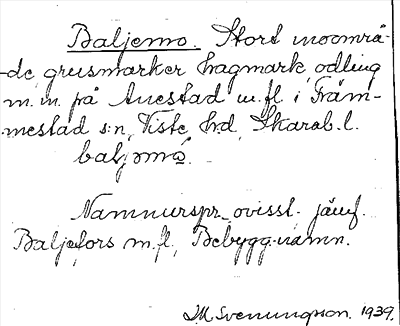 Baljemo. Stort moområ-
de, grusmarker hagmark, odling
m.m. på Anestad m.fl i Främ-
mestad s:n, Viste h:d, Skarab. l.
Namnurspr. ovisst. jämf.
Baljefors m.fl, Bebygg.namn.
J.M. Svenungson. 1939.